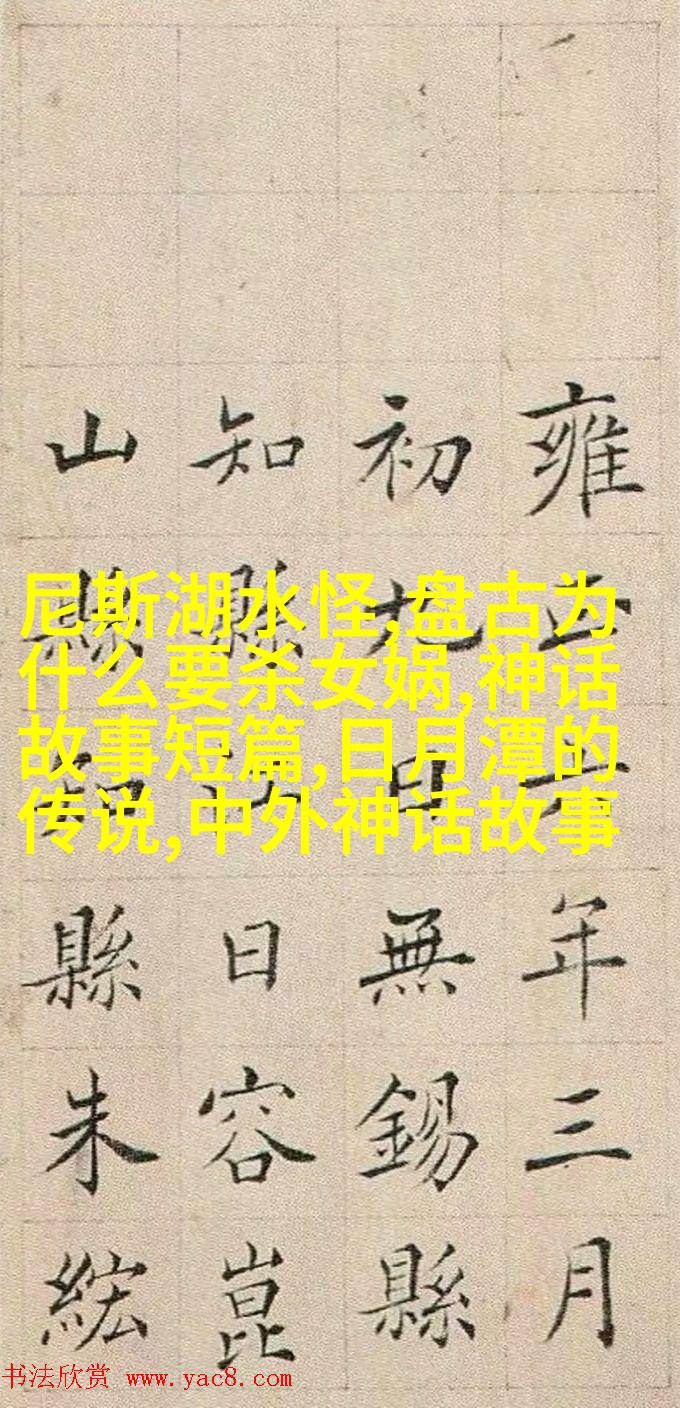 尼斯湖水怪,盘古为
什么要杀女娲,神话
故事短篇,日月潭的
传说,中外神话故事
雍正年三月
初九日無錫縣
知縣江日容崑
山縣知縣朱紘
书法欣赏 www.yac8.com